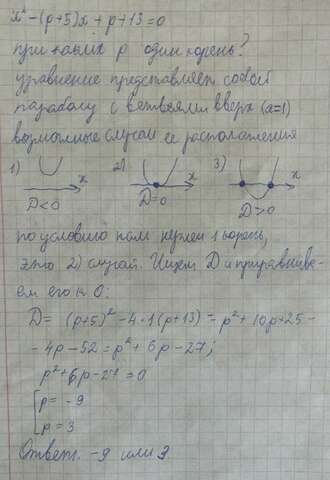 x² - (p+5)x + p + 13 = 0
при каких p один корень?
уравнение представляет собой
параболу с ветвями вверх (a=1)
возможные случаи ее расположения
1) x 2) x 3) x
D<0 D=0 D>0
по условию нам нужен 1 корень,
это 2) случай. Ищем D и приравнива-
ем его к 0:
D = (p+5)² - 4·1(p+13) = p² + 10p + 25 -
- 4p - 52 = p² + 6p - 27;
p² + 6p - 27 = 0
[ p = -9
[ p = 3
Ответ: -9 или 3